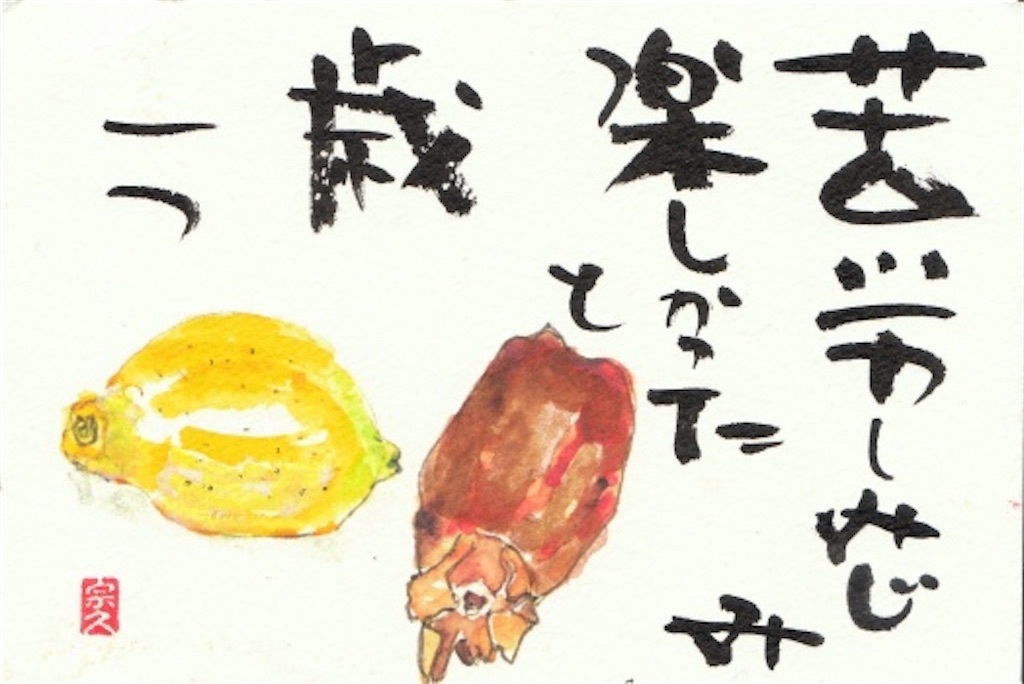 苦労しみじ
み
楽しかった
と
歳
一つ
宗久